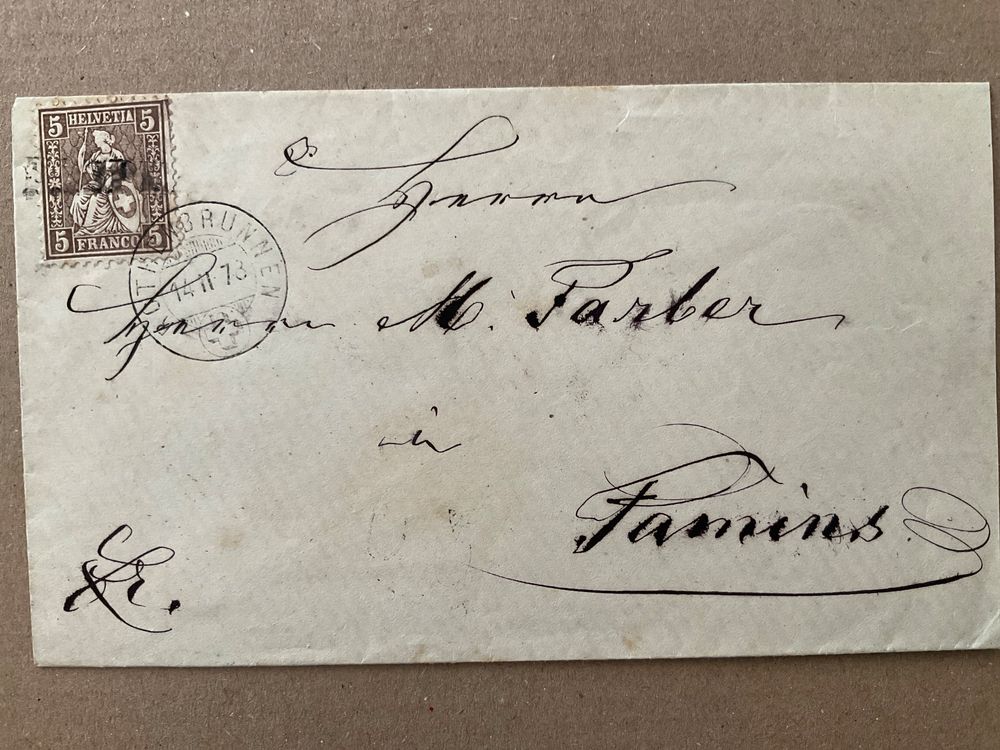 5 HELVETIA 5
5 FRANCO 5
ROTHENBRUNNEN
Herrn
Herrn M. Farber
in
Tamins.
Fr.